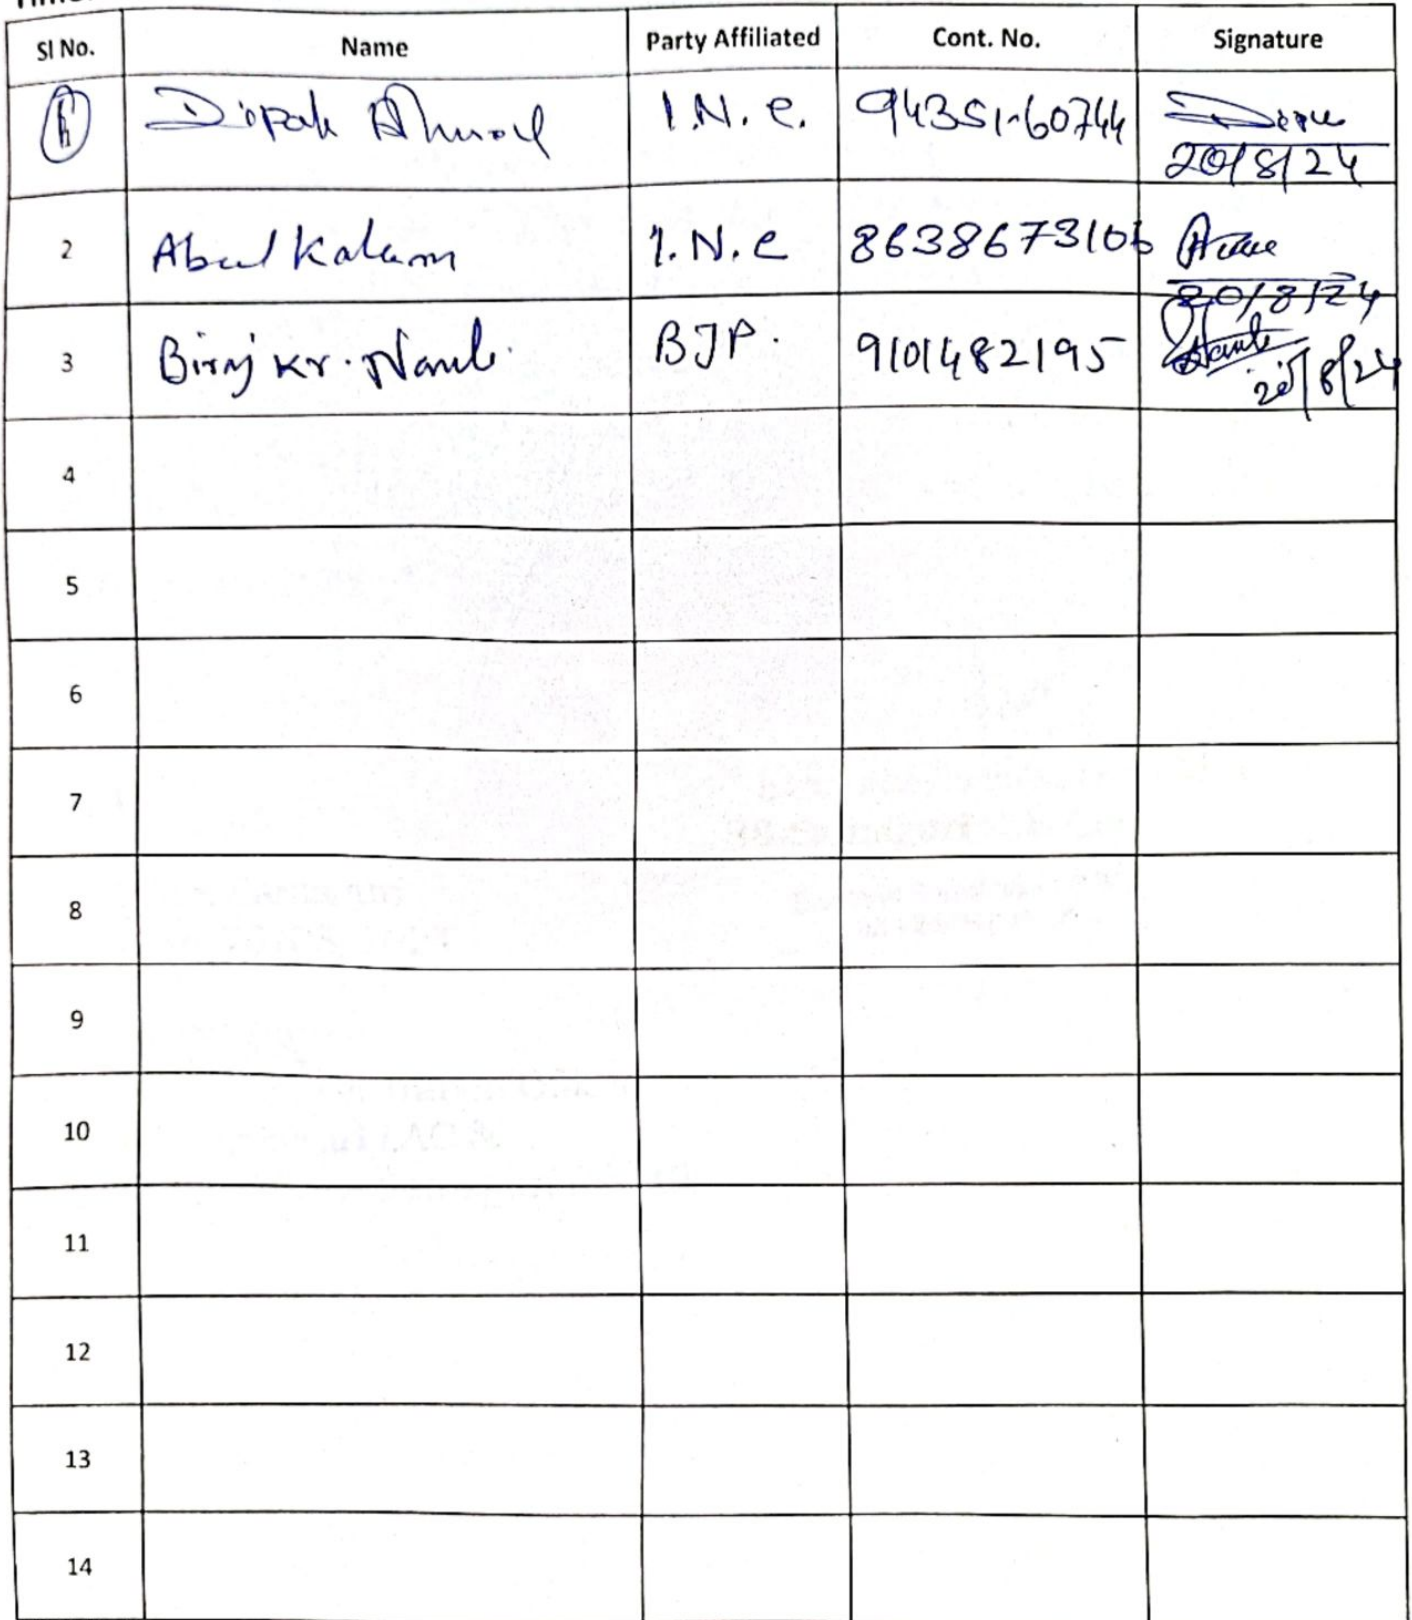 Sl No. Name Party Affiliated Cont. No. Signature
1 Dipak I.N.C. 94351-60744
20/8/24
2 Abul Kalam I.N.C 8638673106
20/8/24
3 Biraj Kr. BJP. 9101482195
20/8/24
4
5
6
7
8
9
10
11
12
13
14